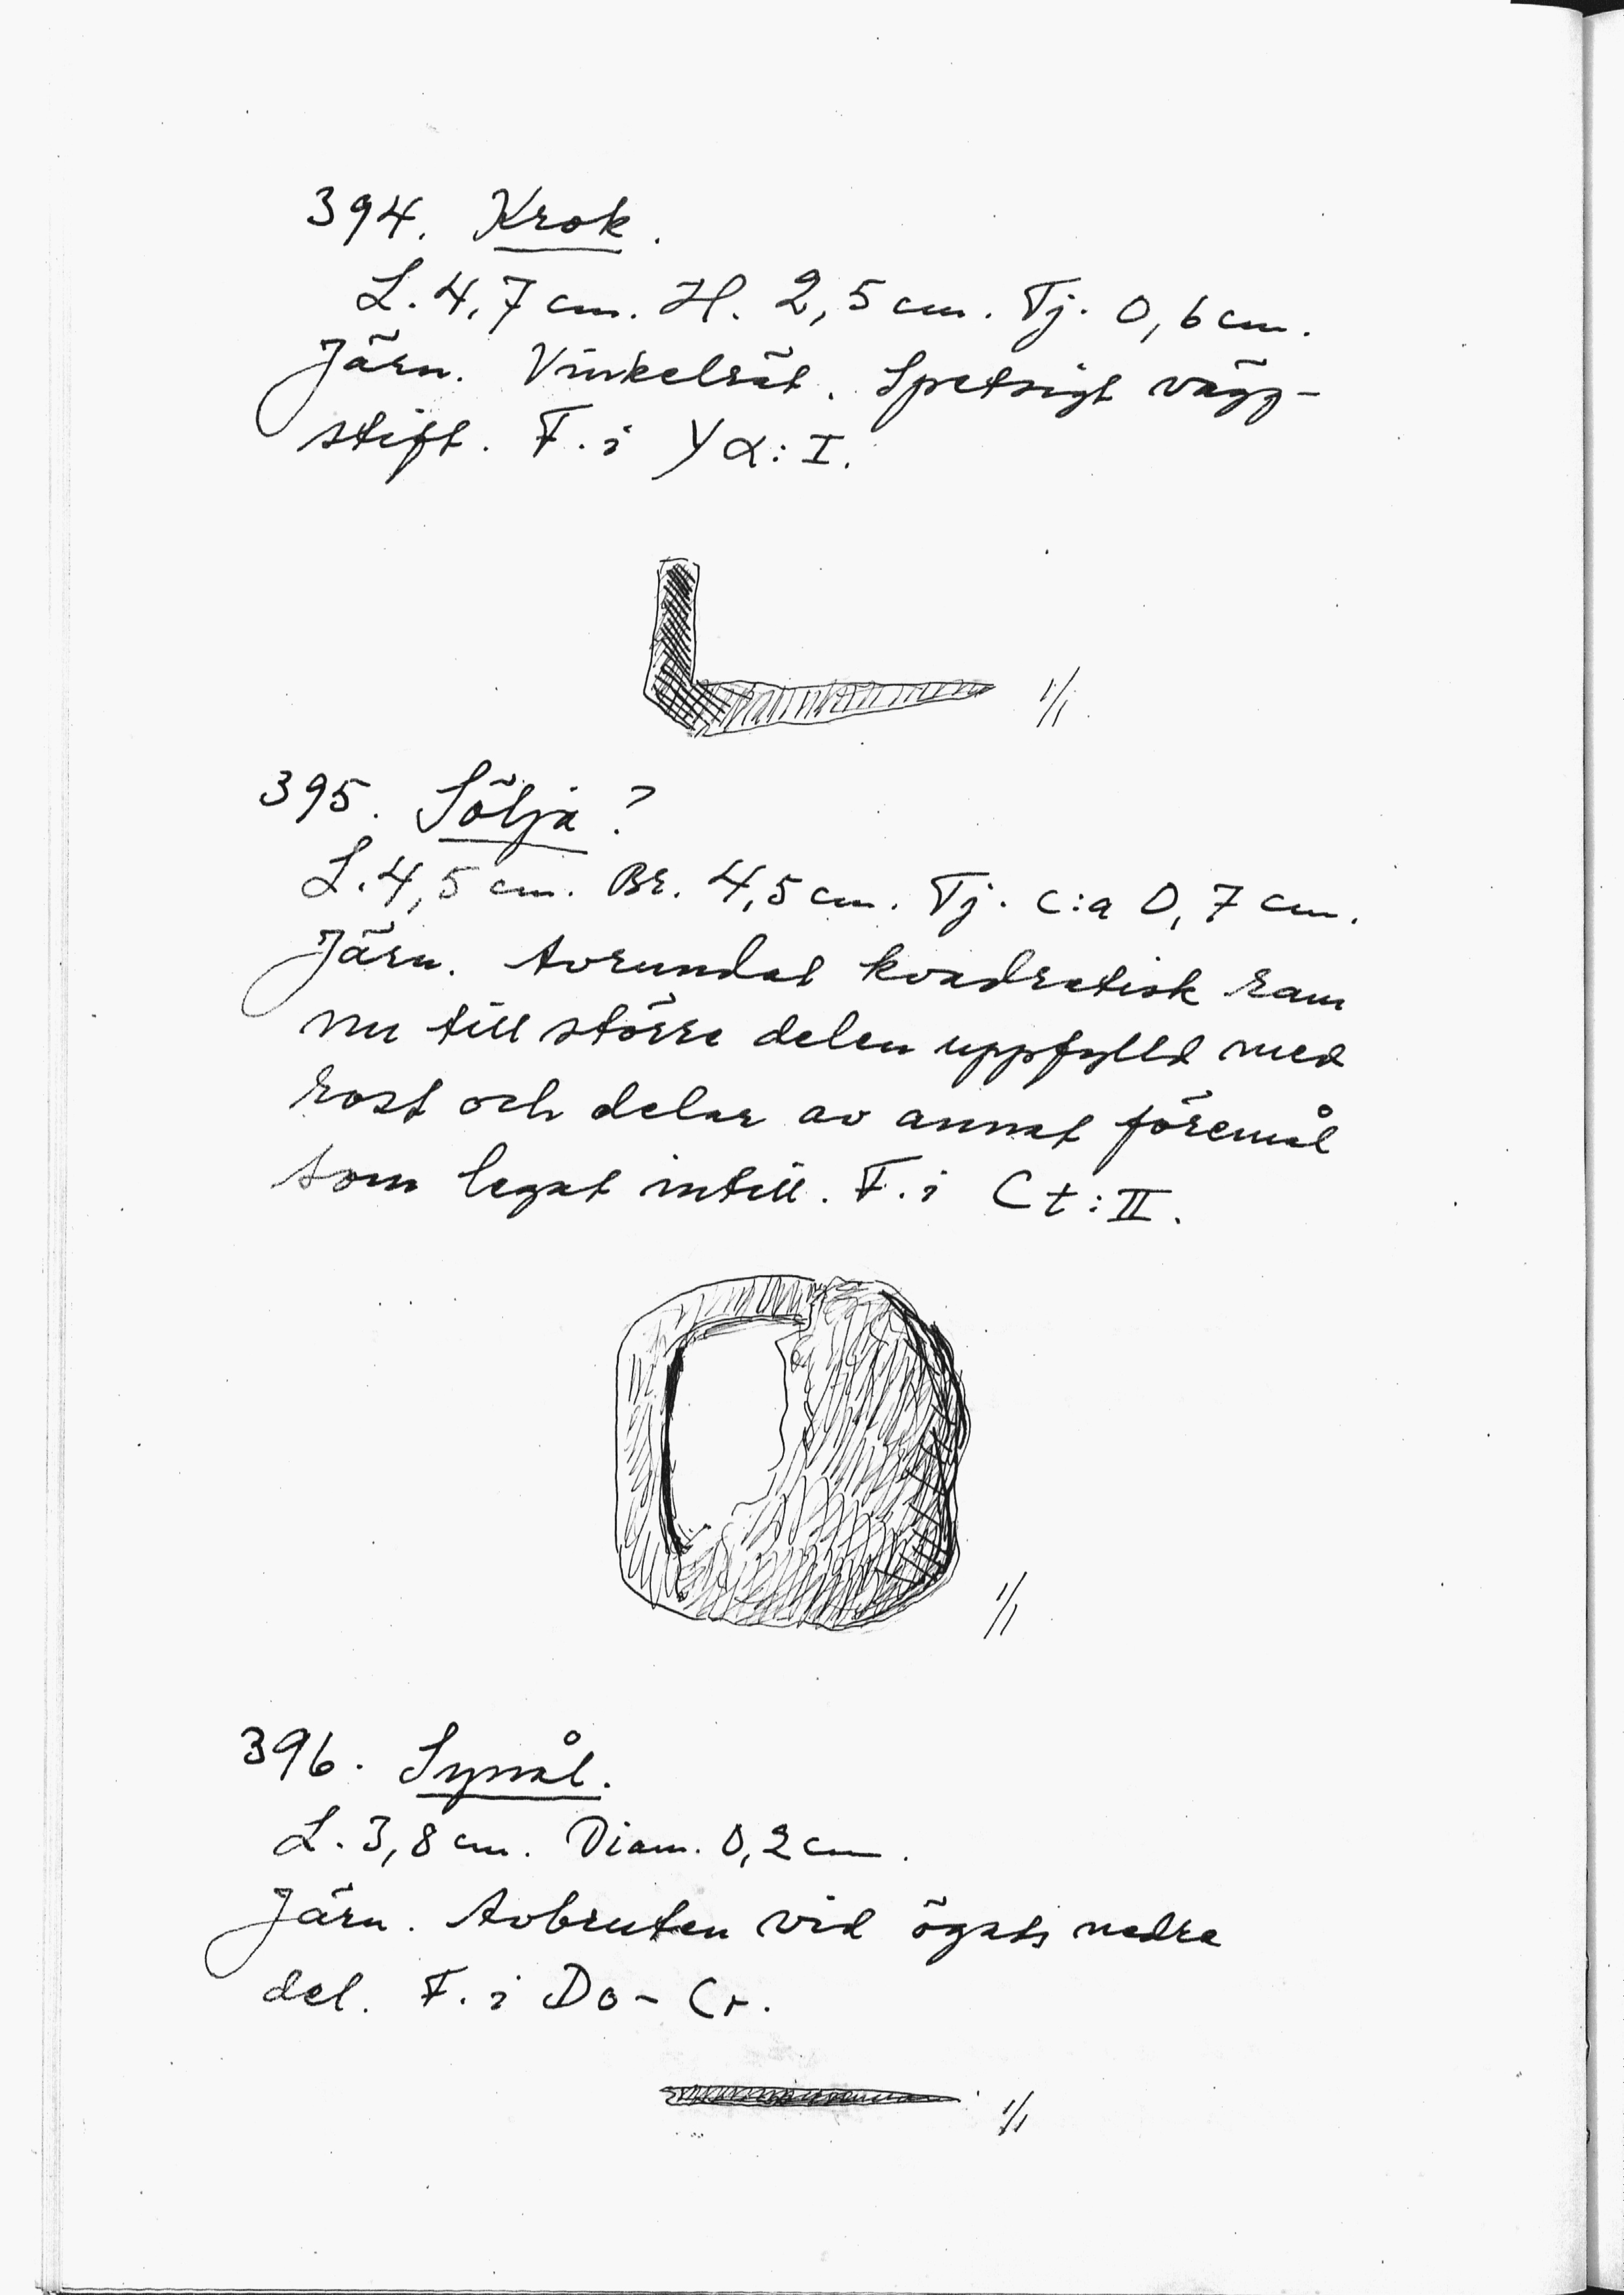 394. Krok.
L. 4,7 cm. H. 2,5 cm. Tj. 0,6 cm.
Järn. Vinkelrät. Spetsigt vägg-
stift. F. i Yα:I.
1/1
395. Sölja?
L. 4,5 cm. Br. 4,5 cm. Tj. c:a 0,7 cm.
Järn. Avrundat kvadratisk ram
nu till större delen uppfylld med
rost och delar av annat föremål
som legat intill. F. i Ct:II.
1/1
396. Synål.
L. 3,8 cm. Diam. 0,2 cm.
Järn. Avbruten vid ögats nedre
del. F. i Do - Cr.
1/1